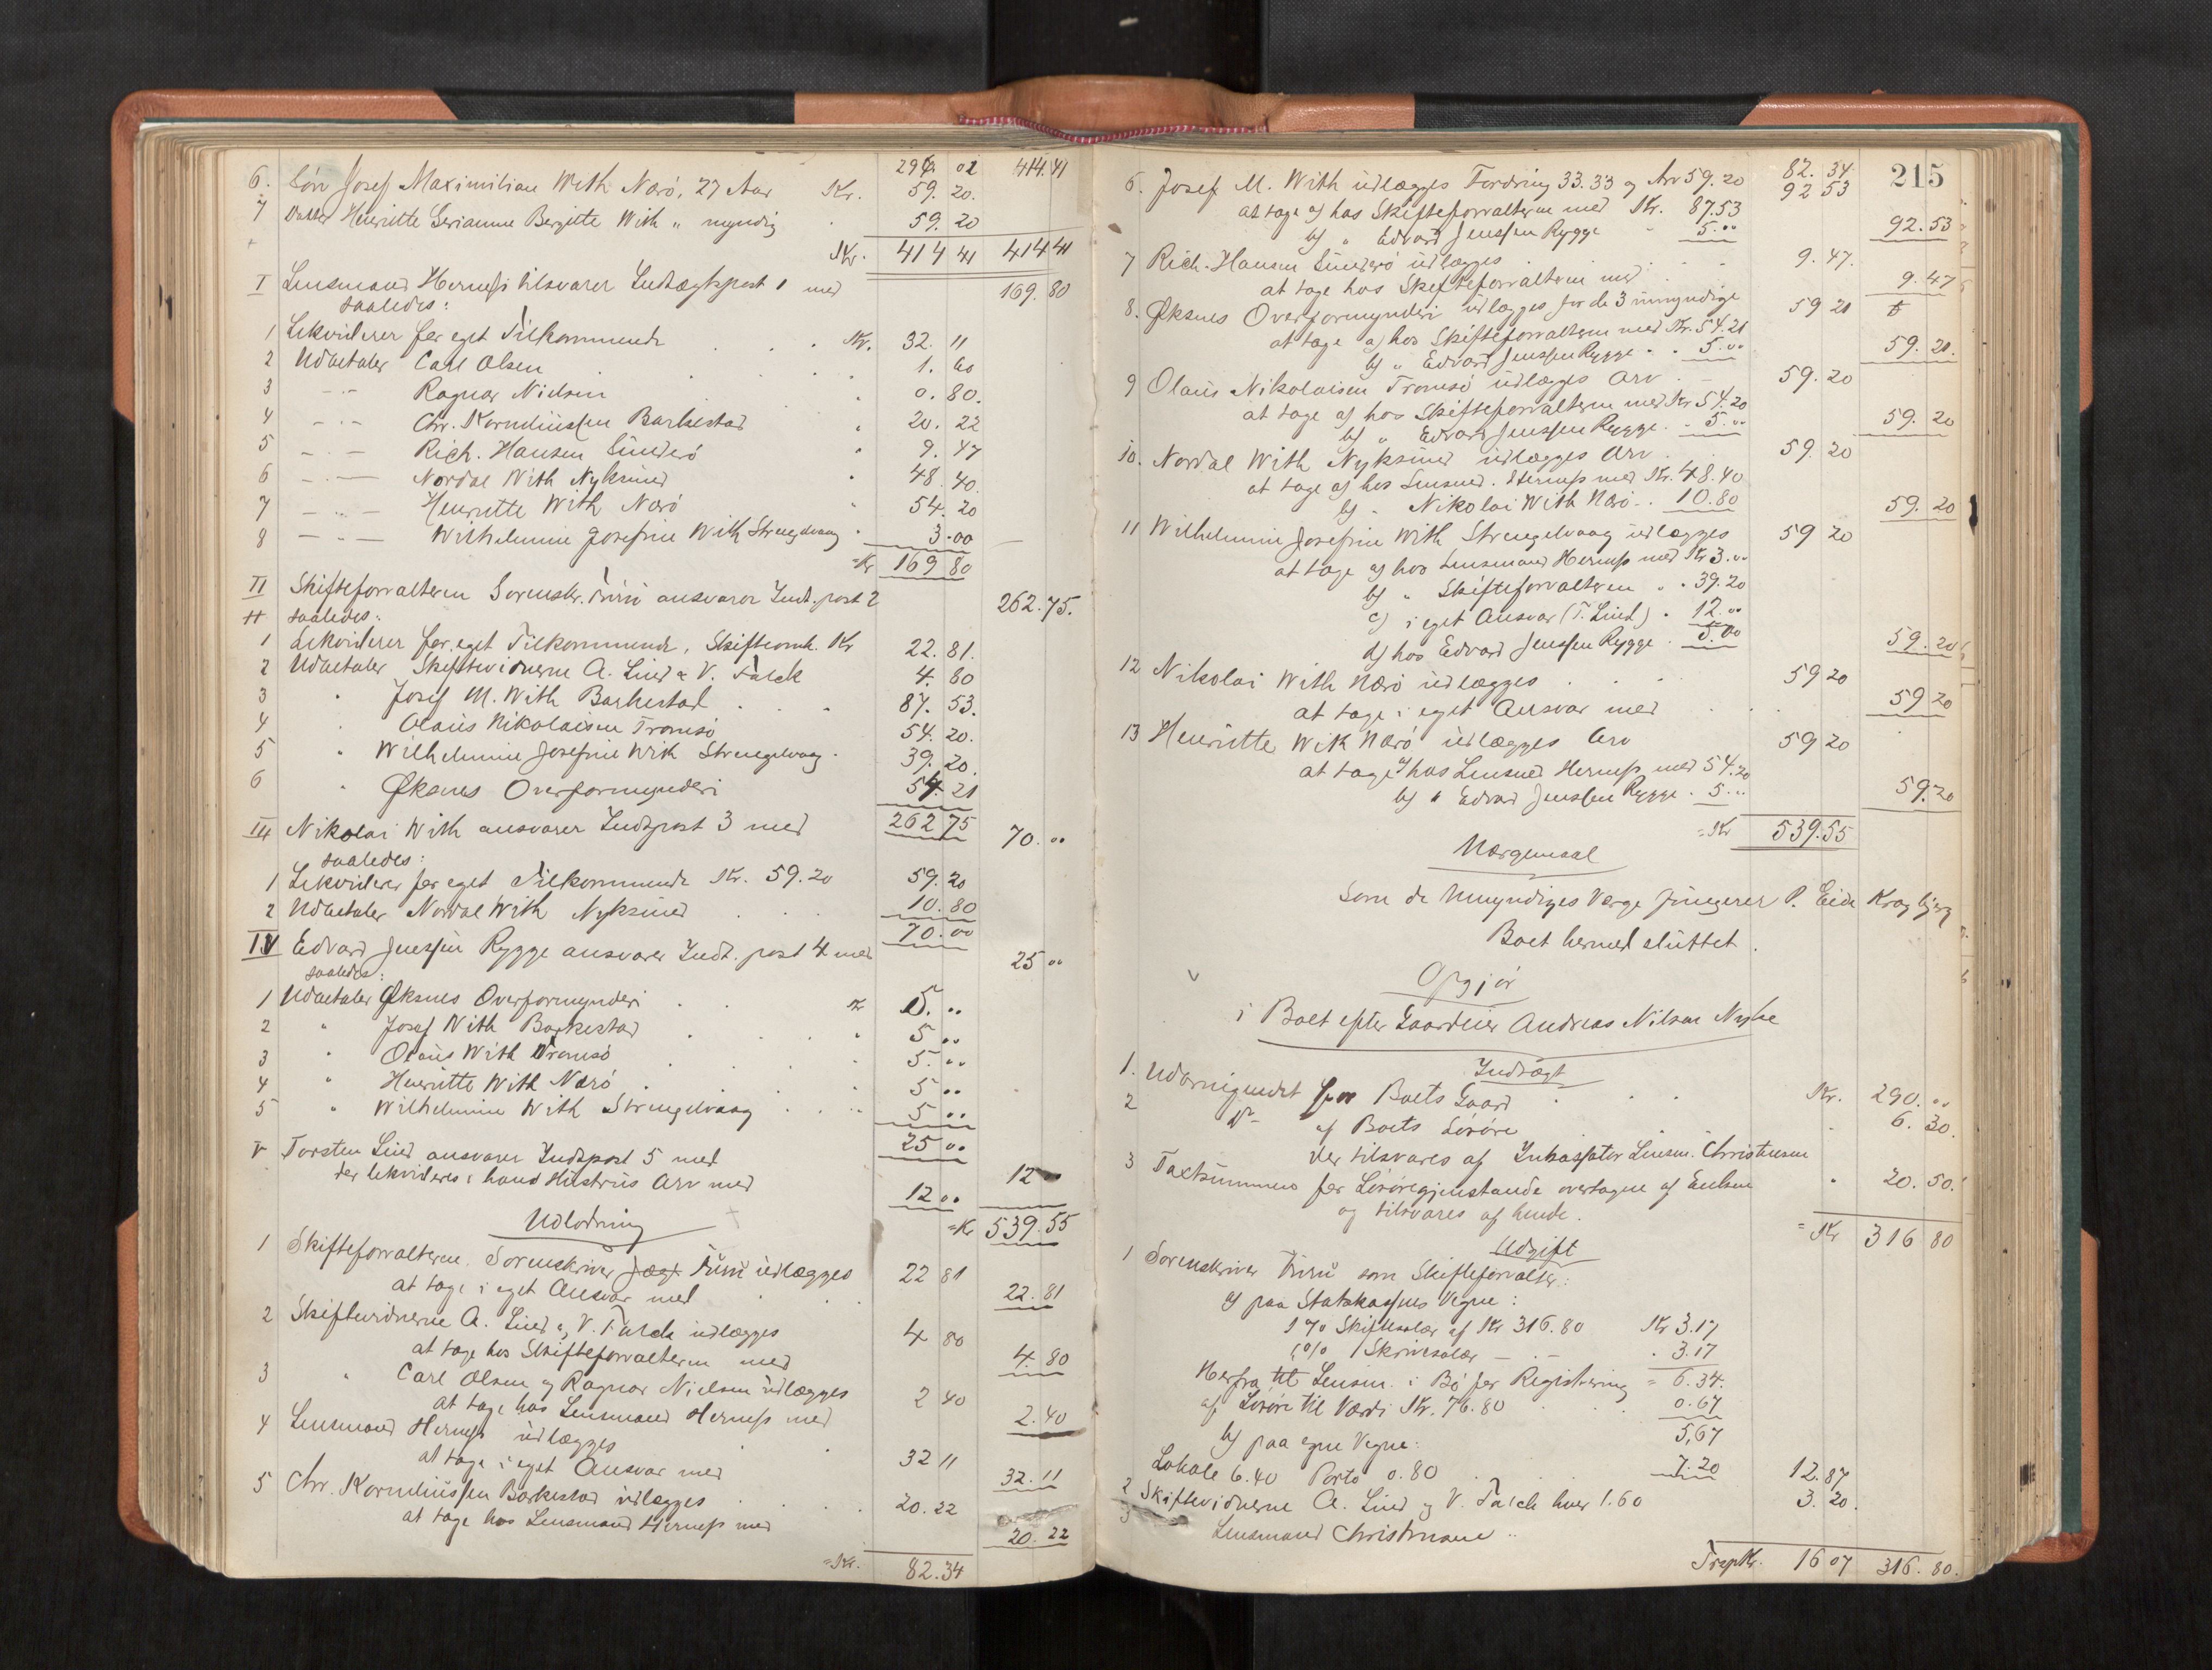 296 02 414.41
6. Søn Josef Maximilian With Nærø, 27 Aar Kr. 59.20.
7 Datter Henriette Serianne Bergitte With " myndig 59.20
Kr. 414 41 414 41
I Lensmand Herness tilsvarer Indtægtspost 1 med 169.80
saaledes:
1 Lekviderer for eget Tilkommende Kr. 32.11
2 Udbetaler Carl Olsen 1.60
3 -"- Ragnar Nielsen 0.80.
4 -"- Chr. Korneliussen Barkestad 20.22
5 -"- Rich. Hansen Sunderø 9.47
6 -"- Nordal With Nyksund 48.40.
7 -"- Henriette With Nærø 54.20
8 -"- Wilhelmine Josefine With Strengelvaag 3.00
=Kr 169 80
II Skifteforvalteren Sorenskr. Juul ansvarer Indt. post 2 262.75.
saaledes:
1 Lekviderer for eget Tilkommende, Skifteomk. Kr 22.81.
2 Udbetaler Skiftevidnerne A. Lind & V. Falck 4.80
3 " Josef M. With Barkestad 87.53.
4 " Olaus Nikolaisen Tromsø 54.20.
5 " Wilhelmine Josefine With Strengelvaag 39.20.
6 " Øksnes Overformynderi 54.21
262 75
III Nikolai With ansvarer Indpost 3 med 70."
saaledes:
1 Lekviderer for eget Tilkommende Kr. 59.20 59.20
2 Udbetaler Nordal With Nyksund 10.80
70.00
IV Edvard Jenssen Rygge ansvarer Indt. post 4 med 25 "
saaledes:
1 Udbetaler Øksnes Overformynderi Kr 5."
2 " Josef With Barkestad 5 "
3 " Olaus With Tromsø 5."
4 " Henriette With Nærø 5 "
5 " Wilhelmine With Strengelvaag 5 "
25 "
V Torsten Lind ansvarer Indpost 5 med 12
der lekvideres i hans Hustrus Arv med 12 "
Udlodning =Kr 539.55
1 Skifteforvalteren Sorenskriver Juul udlægges 22 81
at tage i eget Ansvar med 22.81
2 Skiftevidnerne A. Lind & V. Falck udlægges 4 80
at tage hos Skifteforvalteren med 4.80
3 " Carl Olsen og Ragnar Nielsen udlægges 2 40
at tage hos Lensmand Herness med 2.40
4 Lensmand Herness udlægges 32 11
at tage i eget Ansvar med 32.11
5 Chr. Korneliussen Barkestad udlægges 20.22
at tage hos Lensmand Herness med 20.22
=Kr. 82.34
215
82.34
6. Josef M. With udlægges Fordring 33.33 og Arv 59.20 92 53
at tage a) hos Skifteforvalteren med Kr. 87.53
b) " Edvard Jenssen Rygge " 5." 92.53
7 Rich. Hansen Sunderø udlægges 9.47.
at tage hos Skifteforvalteren med 9.47
8. Øksnes Overformynderi udlægges for de 3 umyndige 59 21
at tage a) hos Skifteforvalteren med Kr. 54.21
b) " Edvard Jenssen Rygge " " 5." 59.21.
9 Olaus Nikolaisen Tromsø udlægges Arv 59.20
at tage a) hos Skifteforvalteren med Kr 54.20
b) " Edvard Jenssen Rygge " 5." 59.20
10. Nordal With Nyksund udlægges Arv 59.20
at tage a) hos Lensmd. Herness med Kr. 48.40
b) " Nikolai With Nærø " 10.80 59.20
11 Wilhelmine Josefine With Strengelvaag udlægges 59 20
at tage a) hos Lensmand Herness med Kr 3."
b) " Skifteforvalteren " " 39.20
c) i eget Ansvar (T. Lind) " 12."
d) hos Edvard Jenssen Rygge " 5.00 59.20
12 Nikolai With Nærø udlægges 59 20
at tage i eget Ansvar med 59 20
13 Henriette With Nærø udlægges Arv 59 20
at tage a) hos Lensmd Herness med 54.20
b) " Edvard Jenssen Rygge " 5." 59.20
=Kr 539.55
Værgemaal
Som de Umyndiges Værge fungerer P. Eide Kragbjerg
Boet hermed sluttet.
Opgjør
i Boet efter Gaardeier Andreas Nilsen Nyke
Indtægt
1. Udbringendet for Boets Gaard Kr. 290."
2 Do af Boets Løsøre 6.30.
der tilsvares af Inkassator Lensm. Christensen
3 Taxtsummen for Løsøregjenstande overtagne af Enken " 20.50.
og tilsvares af hende.
=Kr 316 80
Udgift
1 Sorenskriver Juul som Skifteforvalter:
a) paa Statskassens Vegne:
1 % Skiftesalær af Kr 316.80 Kr 3.17
1 % Skriversalær -"- " 3.17
Herfra til Lensm. i Bø for Registrering = 6.34.
af Løsøre til Værdi Kr. 76.80 0.67
5,67
b) paa egne Vegne:
Lokale 6.40 Porto 0.80 7.20 12.87
2 Skiftevidnerne A. Lind og V. Falck hver 1.60 3.20.
3 Lensmand Christensen "
Trsp Kr. 16 07 316.80.